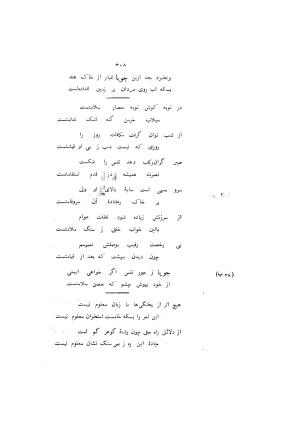 ۳۰۸
برنخیزد بعد ازین جویا غبار از خاک هند
بسکه آب روی مردان بر زمین افتاده‌است
در توبه کوش توبه حصار سلامتست
سیلاب خرمن گنه اشک ندامتست
از شب توان گرفت مکافات روز را
روزی که نیست شب ز پی او قیامتست
صبر گران‌رکاب دهد نفس را شکست
نصرت همیشه در قدم استقامتست
سرو سهی است سایهٔ بالای او ولی
بر خاک رهفتادهٔ آن سروقامتست
از سرزنش زیاده شود غفلت عوام
بالین خواب خلق ز سنگ ملامتست
بی رخصت رقیب بوصلش نمیرسم
چون دیدن بهشت که بعد از قیامتست
جویا ز جور نفس اگر خواهی ایمنی
از خود بپوش چشم که حصن سلامتست
هیچ اثر از پختگی‌ها با زبان معلوم نیست
این ثمر را بسکه خامست استخوان معلوم نیست
از دلائل راه حق چون رشتهٔ گوهر گم است
جادهٔ این ره ز بس سنگ نشان معلوم نیست